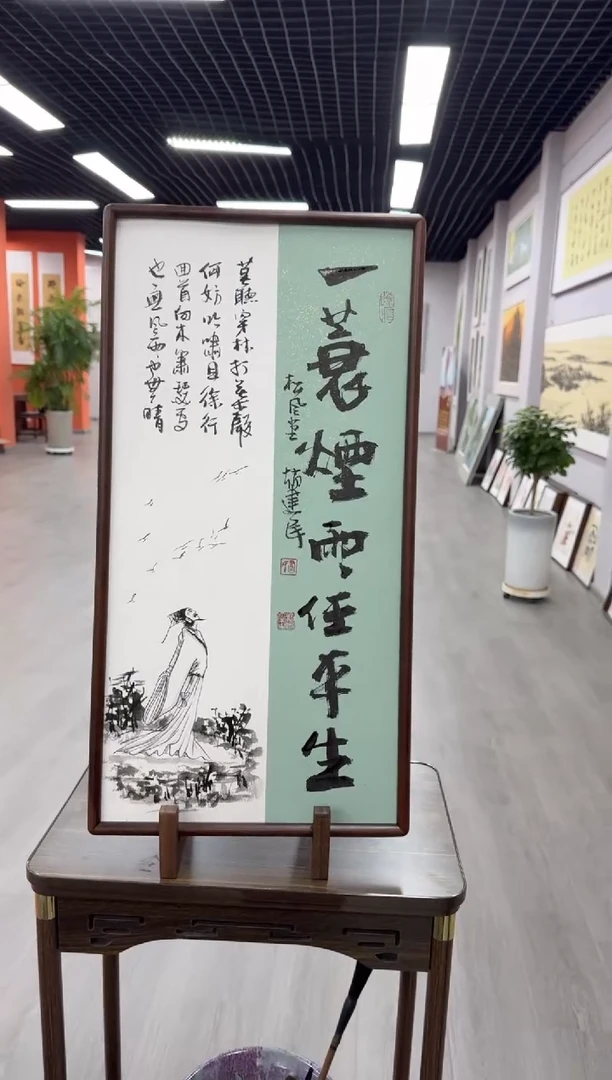 一蓑煙雨任平生
松风堂
建民
莫聽穿林打葉聲
何妨吟嘯且徐行
回首向来蕭瑟处
也無风雨也無晴